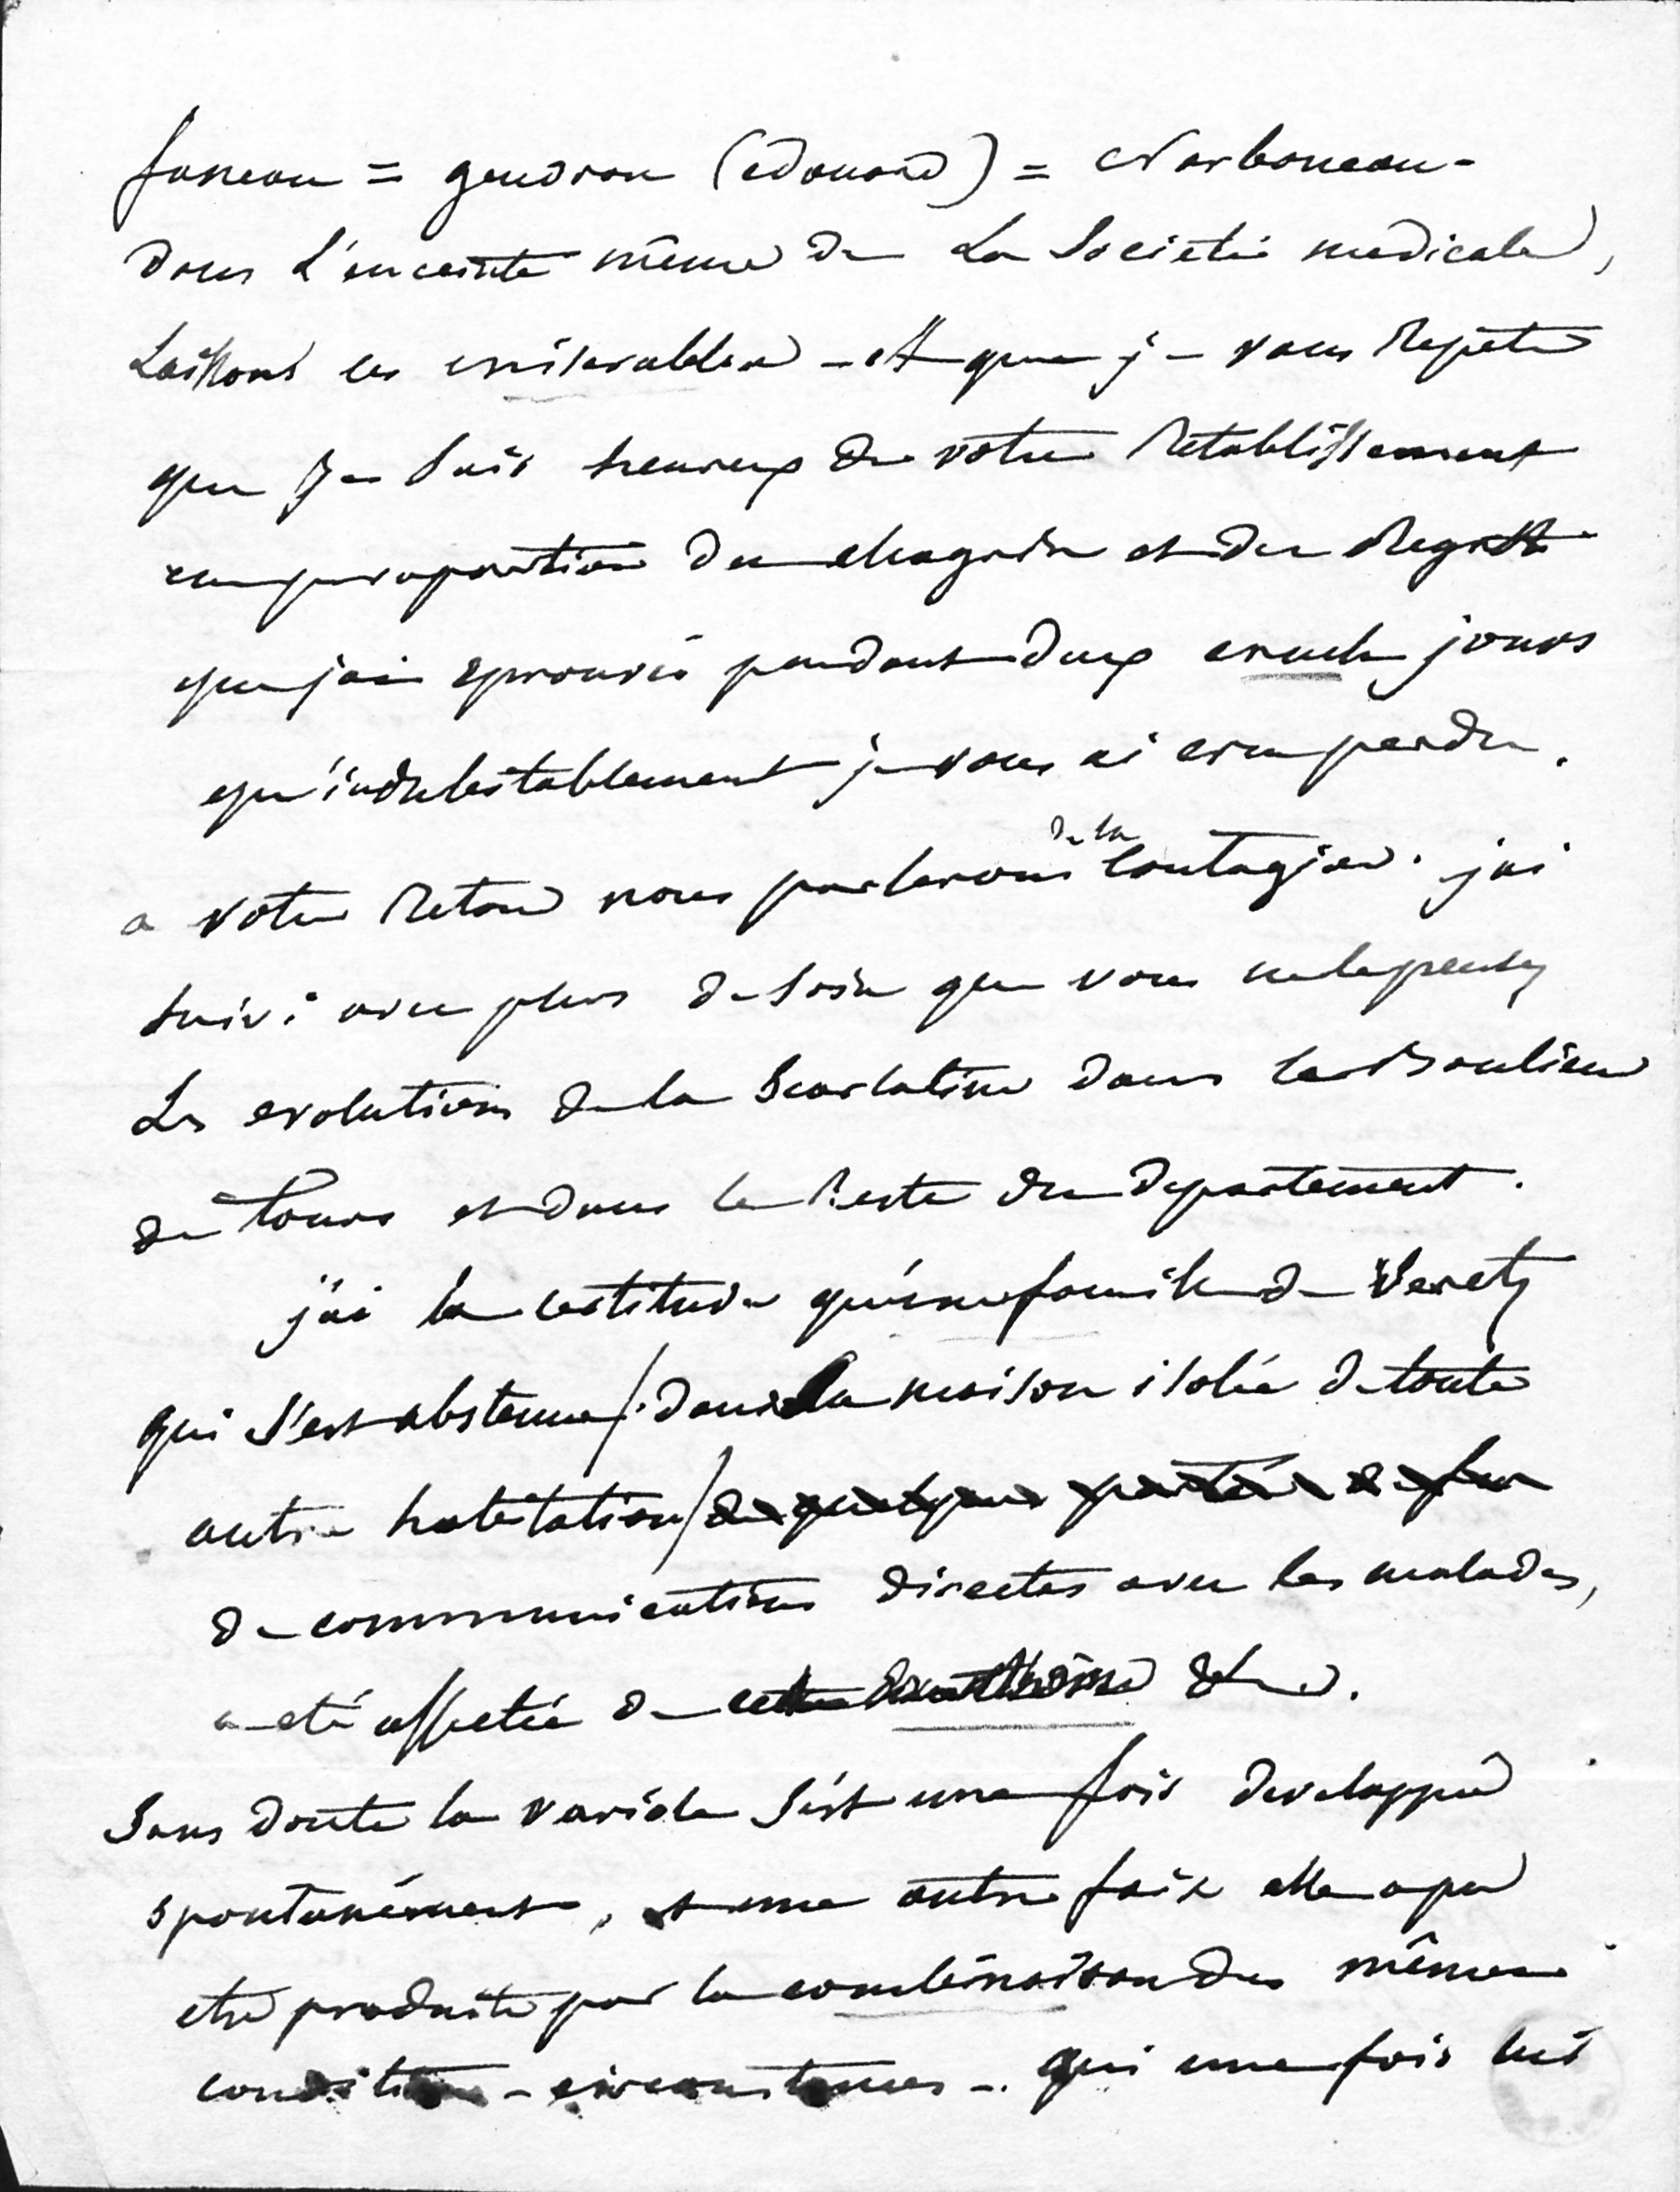 funeau = gendron (edouard) = Narboneau -
dans l'enceinte même de la Societé medicale,
Laissons ces miserables - et que je vous repete
que je suis heureux de votre retablissement
en proportion du chagrin et des regrets
que jai eprouvés pendant deux cruels jours
qu'indubitablement je vous ai cru perdu.
a votre retour nous parlerons de la Contagion. jai
suivi avec plus de soin que vous ne le pensez
Les evolutions de la Scarlatine dans la banlieue
de Tours et dans le reste du departement.
j'ai la certitude qu'une famille de Veretz
qui s'est abstenue / dans la maison isolée de toute
autre habitation / de quelque
de communications directes avec les malades,
a eté affectée de cette
Sans doute la variole s'est une fois developpée
spontanément, et une autre fois elle a pu
etre produite par la combinaison des mêmes
conditions - circonstances -. qui une fois lui